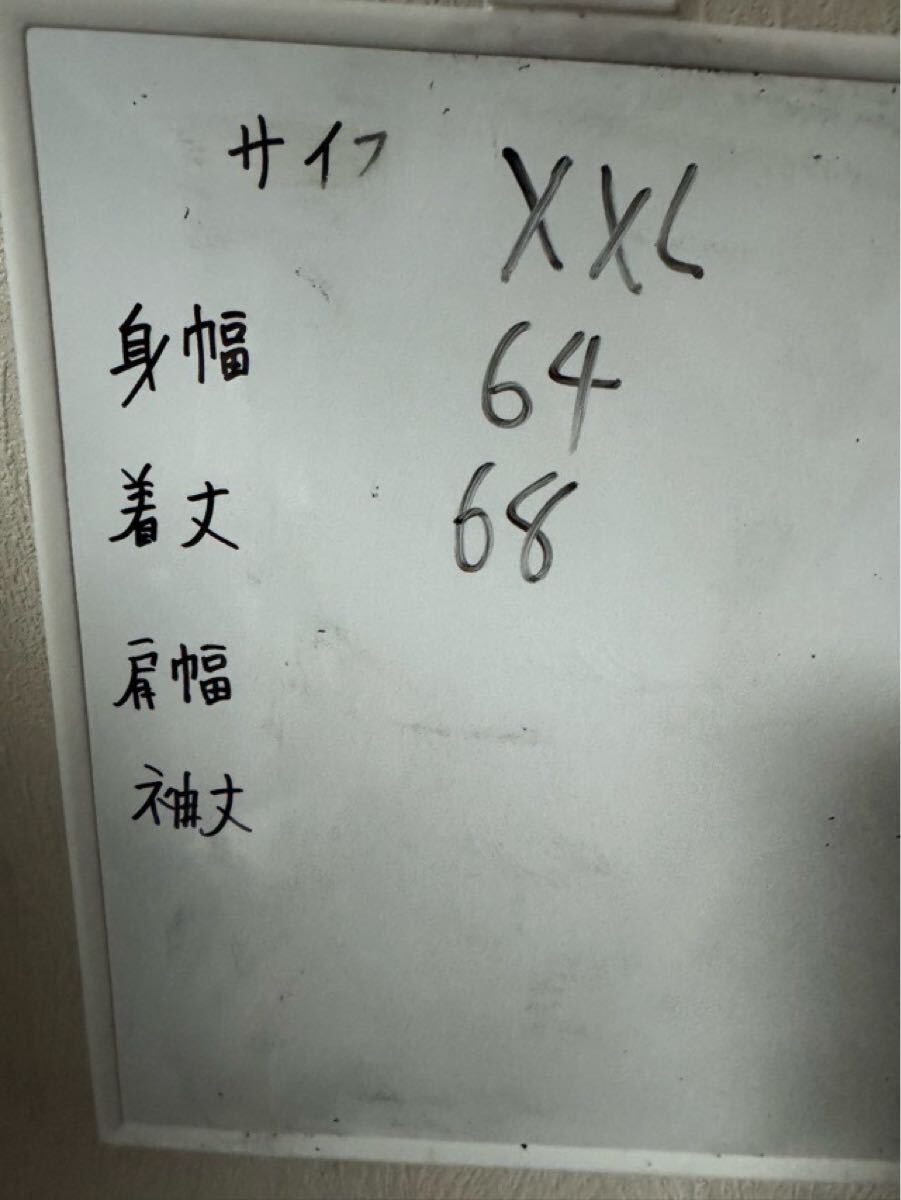 サイフ XXL
身幅 64
着丈 68
肩幅
袖丈